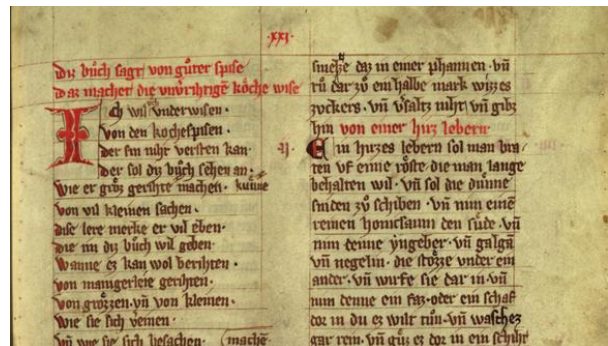 ·xxi·
diz bůch sagt von gůter spise
daz machet die vnv̓rihtigē kǒche wise
Ich wil vnderwisen·
von den kochespisen·
der sin niht versten kan·
der sol diz bůch sehen an·
wie er groz gerihte machen· kunne
von vil kleinen sachen·
dise lere merke er vil eben·
die im diz bůch wil geben·
wanne ez kan wol berihten·
von mangerleie gerihten·
von grozzen·vñ von kleinen·
wie sie sich vereinen·
vñ wie sie sich besachen· (machē
smeltze daz in einer phannen· vñ
tů dar zů ein halbe mark wizzes
zvckers· vñ v̓saltz niht vñ gibz
hin von einer hirz lebern
ij·
Ein hirzes lebern sol man bra-
ten vf eime röste· die man lange
behalten wil· vñ sol die dünne
sniden zů schiben· vñ nim einē
reinen honicsaum den süde· vñ
nim denne yngeber· vñ galgā
vñ negelin· die stözze vnder ein
ander· vñ wirfe sie dar in· vñ
nim denne ein faz· oder ein schaf
dor in du ez wilt tůn· vñ waschez
gar rein· vñ güz ez dor in ein schiht